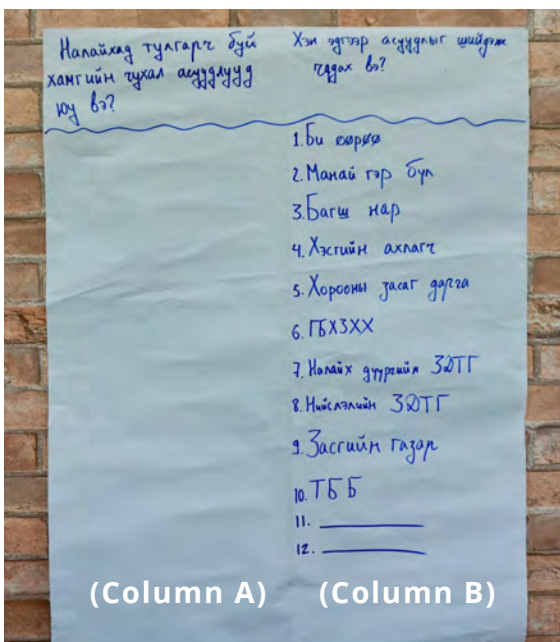 Налайхад тулгарч буй
хамгийн чухал асуудлууд
юу вэ?
Хэн эдгээр асуудлыг шийдэж
чадах вэ?
1. Би өөрөө
2. Манай гэр бүл
3. Багш нар
4. Хэсгийн ахлагч
5. Хорооны засаг дарга
6. ГБХЗХХ
7. Налайх дүүргийн ЗДТГ
8. Нийслэлийн ЗДТГ
9. Засгийн газар
10. ТББ
11.
12.
(Column A) (Column B)